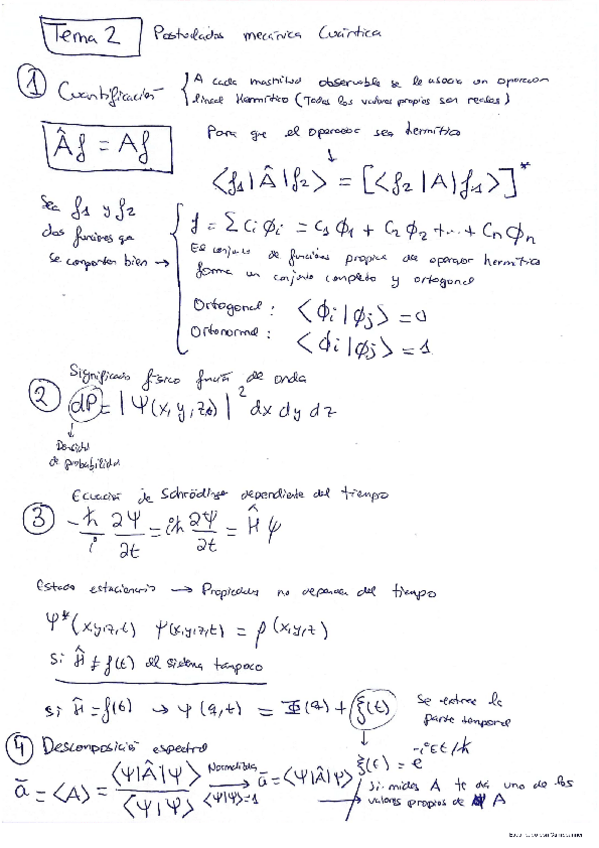 Tema 2 Postulados mecánica Cuántica
① Cuantificación { A cada magnitud observable se le asocia un operador
lineal Hermítico (Todos los valores propios son reales)
Âf = Af
Para que el operador sea hermítico
↓
<f1|Â|f2> = [<f2|A|f1>]*
Sea f1 y f2
dos funciones que
se comporten bien →
f = Σ ci ϕi = c1 ϕ1 + c2 ϕ2 + ... + cn ϕn
El conjunto de funciones propias del operador hermítico
forma un conjunto completo y ortogonal
Ortogonal: <ϕi|ϕj> = 0
Ortonormal: <ϕi|ϕj> = 1
Significado físico función de onda
② dP = |Ψ(x, y, z)|² dx dy dz
↓
Densidad
de probabilidad
Ecuación de Schrödinger dependiente del tiempo
③ -ℏ/i ∂Ψ/∂t = iℏ ∂Ψ/∂t = Ĥ Ψ
Estado estacionario → Propiedades no dependen del tiempo
Ψ*(x,y,z,t) Ψ(x,y,z,t) = ρ(x,y,z)
Si Ĥ ≠ f(t) el sistema tampoco
si Ĥ = f(t) → Ψ(q,t) = Φ(q) + ξ(t)
Se extrae la
parte temporal
↓
ξ(t) = e^-iEt/ℏ
④ Descomposición espectral
ā = <A> = <Ψ|Â|Ψ> / <Ψ|Ψ> Normalizada → <Ψ|Ψ>=1 ā = <Ψ|Â|Ψ>
→ Si mides A te da uno de los
valores propios de A